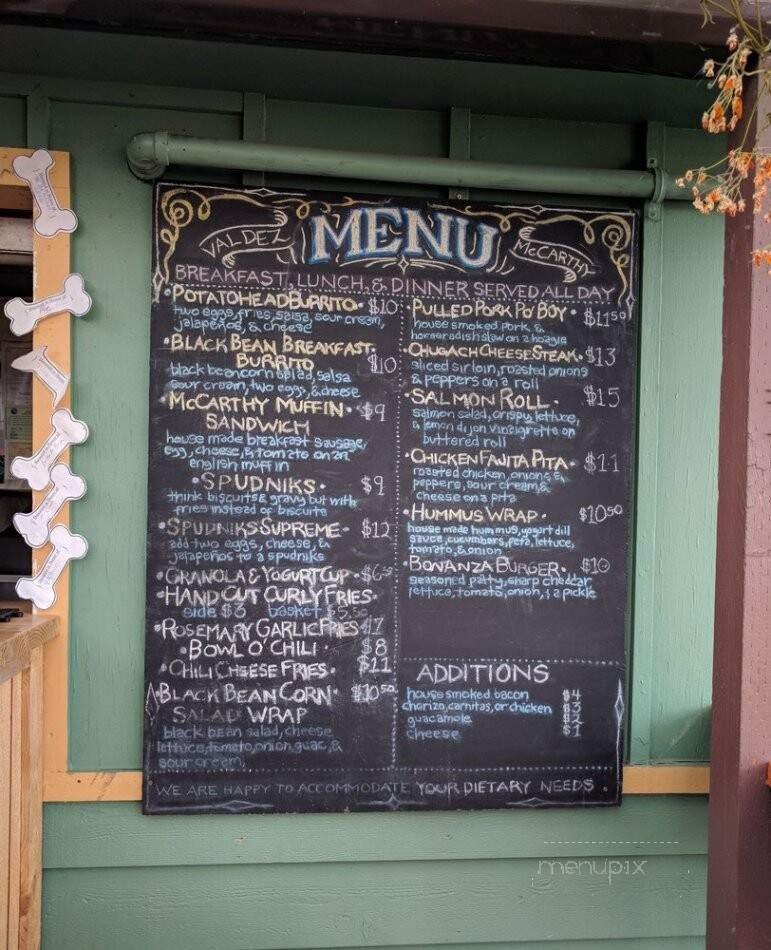 VALDEZ MENU McCARTHY
BREAKFAST, LUNCH, & DINNER SERVED ALL DAY
•POTATOHEAD BURRITO• $10
two eggs, fries, salsa, sour cream,
jalapeños, & cheese
•BLACK BEAN BREAKFAST•
BURRITO $10
black bean corn salad, salsa
sour cream, two eggs, & cheese
•McCARTHY MUFFIN• $9
SANDWICH
house made breakfast sausage,
egg, cheese, & tomato on an
english muffin
•SPUDNIKS• $9
think biscuits & gravy but with
fries instead of biscuits
•SPUDNIKS SUPREME• $12
add two eggs, cheese, &
jalapeños to a spudniks
•GRANOLA & YOGURT CUP•
•HAND CUT CURLY FRIES•
side $3 basket $5.50
•ROSEMARY GARLIC FRIES $7
•BOWL O' CHILI• $8
•CHILI CHEESE FRIES• $11
•BLACK BEAN CORN• $10.50
SALAD WRAP
black bean salad, cheese
lettuce, tomato, onion, guac, &
sour cream,
•PULLED PORK PO' BOY• $11.50
house smoked pork, &
horseradish slaw on a hoagie
•CHUGACH CHEESE STEAK• $13
sliced sirloin, roasted onions
& peppers on a roll
•SALMON ROLL• $15
salmon salad, crispy lettuce,
a lemon dijon vinaigrette on
buttered roll
•CHICKEN FAJITA PITA• $11
roasted chicken, onions &
peppers, sour cream, &
cheese on a pita
•HUMMUS WRAP• $10.50
house made hummus, yogurt dill
sauce, cucumbers, feta, lettuce,
tomato, & onion
•BONANZA BURGER• $10
seasoned patty, sharp cheddar,
lettuce, tomato, onion, & a pickle
ADDITIONS
house smoked bacon $4
chorizo, carnitas, or chicken $3
guacamole $2
cheese $1
WE ARE HAPPY TO ACCOMMODATE YOUR DIETARY NEEDS.
menupix